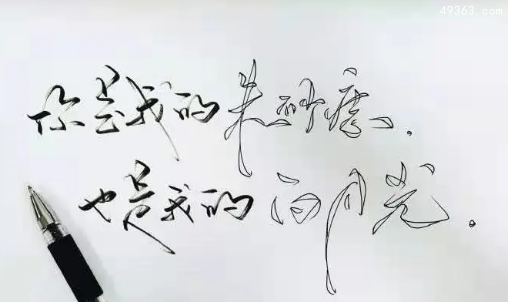 49363.com
你是我的朱砂痣、
也是我的白月光.